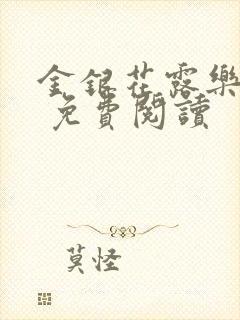 金銀花露樂
免費閱讀
莫怪